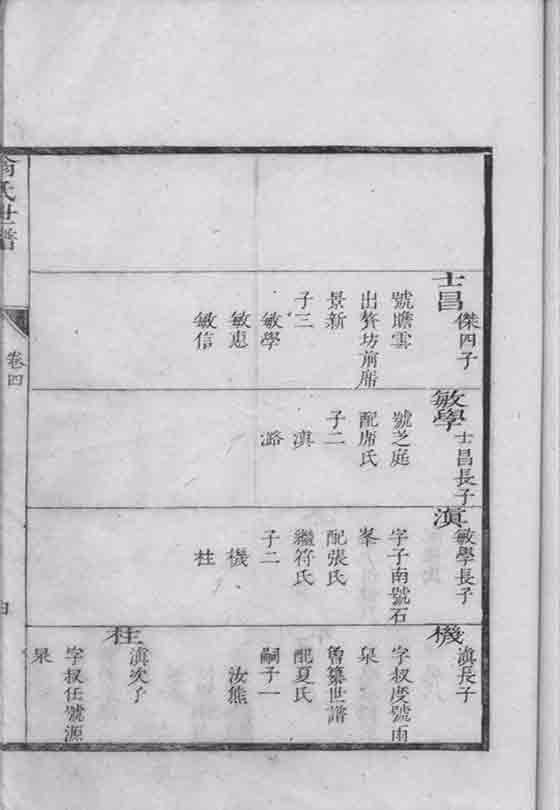 士昌
傑四子
號瞻雲
出贅坊前席
景新
子三
敏學
敏惠
敏信
敏學
士昌長子
號芝庭
配席氏
子二
滇
潞
滇
敏學長子
字子南號石
峯
配張氏
繼符氏
子二
機
柱
機
滇長子
字叔度號雨
泉
曾纂世譜
配夏氏
嗣子一
汝熊
柱
滇次子
字叔任號源
泉
氏世譜
卷四